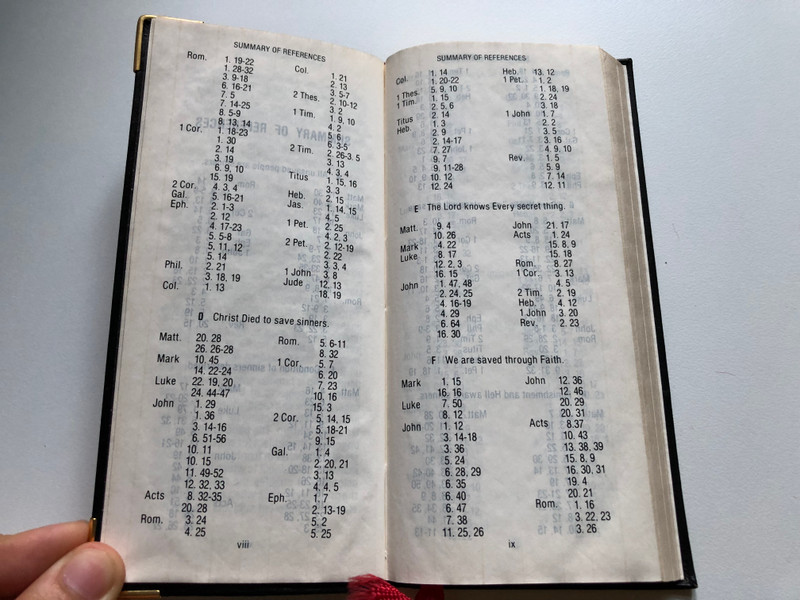 SUMMARY OF REFERENCES
Rom. 1. 19-22
1. 28-32
3. 9-18
6. 16-21
7. 5
7. 14-25
8. 5-9
8. 13, 14
1 Cor. 1. 18-23
1. 30
2. 14
3. 19
6. 9, 10
15. 19
2 Cor. 4. 3, 4
Gal. 5. 16-21
Eph. 2. 1-3
2. 12
4. 17-23
5. 5-8
5. 11, 12
5. 14
Phil. 2. 21
3. 18, 19
Col. 1. 13
Col. 1. 21
2. 13
3. 5-7
2 Thes. 2. 10-12
3. 2
1 Tim. 1. 9, 10
4. 2
5. 6
6. 3-5
2 Tim. 2. 26-3. 5
3. 13
4. 3, 4
Titus 1. 15, 16
3. 3
Heb. 2. 15
Jas. 1. 14, 15
4. 5
1 Pet. 2. 25
4. 2, 3
2 Pet. 2. 12-19
2. 22
3. 3, 4
1 John 3. 8
Jude 12. 13
18. 19
D Christ Died to save sinners.
Matt. 20. 28
26. 26-28
Mark 10. 45
14. 22-24
Luke 22. 19, 20
24. 44-47
John 1. 29
1. 36
3. 14-16
6. 51-56
10. 11
10. 15
11. 49-52
12. 32, 33
Acts 8. 32-35
20. 28
Rom. 3. 24
4. 25
Rom. 5. 6-11
8. 32
1 Cor. 5. 7
6. 20
7. 23
10, 16
15. 3
2 Cor. 5. 14, 15
5. 18-21
9. 15
Gal. 1. 4
2. 20, 21
3. 13
4. 4, 5
Eph. 1. 7
2. 13-19
5. 2
5. 25
viii
SUMMARY OF REFERENCES
Col. 1. 14
1. 20-22
1 Thes. 5. 9, 10
1 Tim. 1. 15
2. 5, 6
Titus 2. 14
Heb. 1. 3
2. 9
2. 14-17
7. 27
9. 7
9. 11-28
10. 12
12. 24
Heb. 13. 12
1 Pet. 1. 2
1. 18, 19
2. 24
3. 18
1 John 1. 7
2. 2
3. 5
3. 16
4. 9, 10
Rev. 1. 5
5. 9
7. 14
12. 11
E The Lord knows Every secret thing.
Matt. 9. 4
10. 26
Mark 4. 22
Luke 8. 17
12. 2, 3
16. 15
John 1. 47, 48
2. 24, 25
4. 16-19
4. 29
6. 64
16. 30
John 21. 17
Acts 1. 24
15. 8, 9
15. 18
Rom. 8. 27
1 Cor. 3. 13
4. 5
2 Tim. 2. 19
Heb. 4. 12
1 John 3. 20
Rev. 2. 23
F We are saved through Faith.
Mark 1. 15
16. 16
Luke 7. 50
8. 12
John 1. 12
3. 14-18
3. 36
5. 24
6. 28, 29
6. 35
6. 40
6. 47
7. 38
11. 25, 26
John 12. 36
12. 46
20. 29
20. 31
Acts 8.37
10. 43
13. 38, 39
15. 8, 9
16. 30, 31
19. 4
20. 21
Rom. 1. 16
3. 22, 23
3. 26
ix